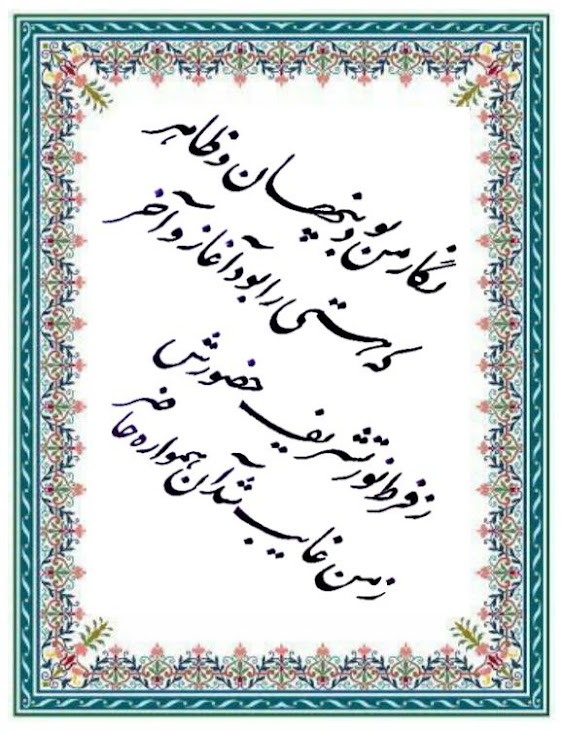 نگار من بود پنهان و ظاهر
که هستی را بود آغاز و آخر
ز فرط نور تشریف حضورش
ز من غایب شد آن همواره حاضر